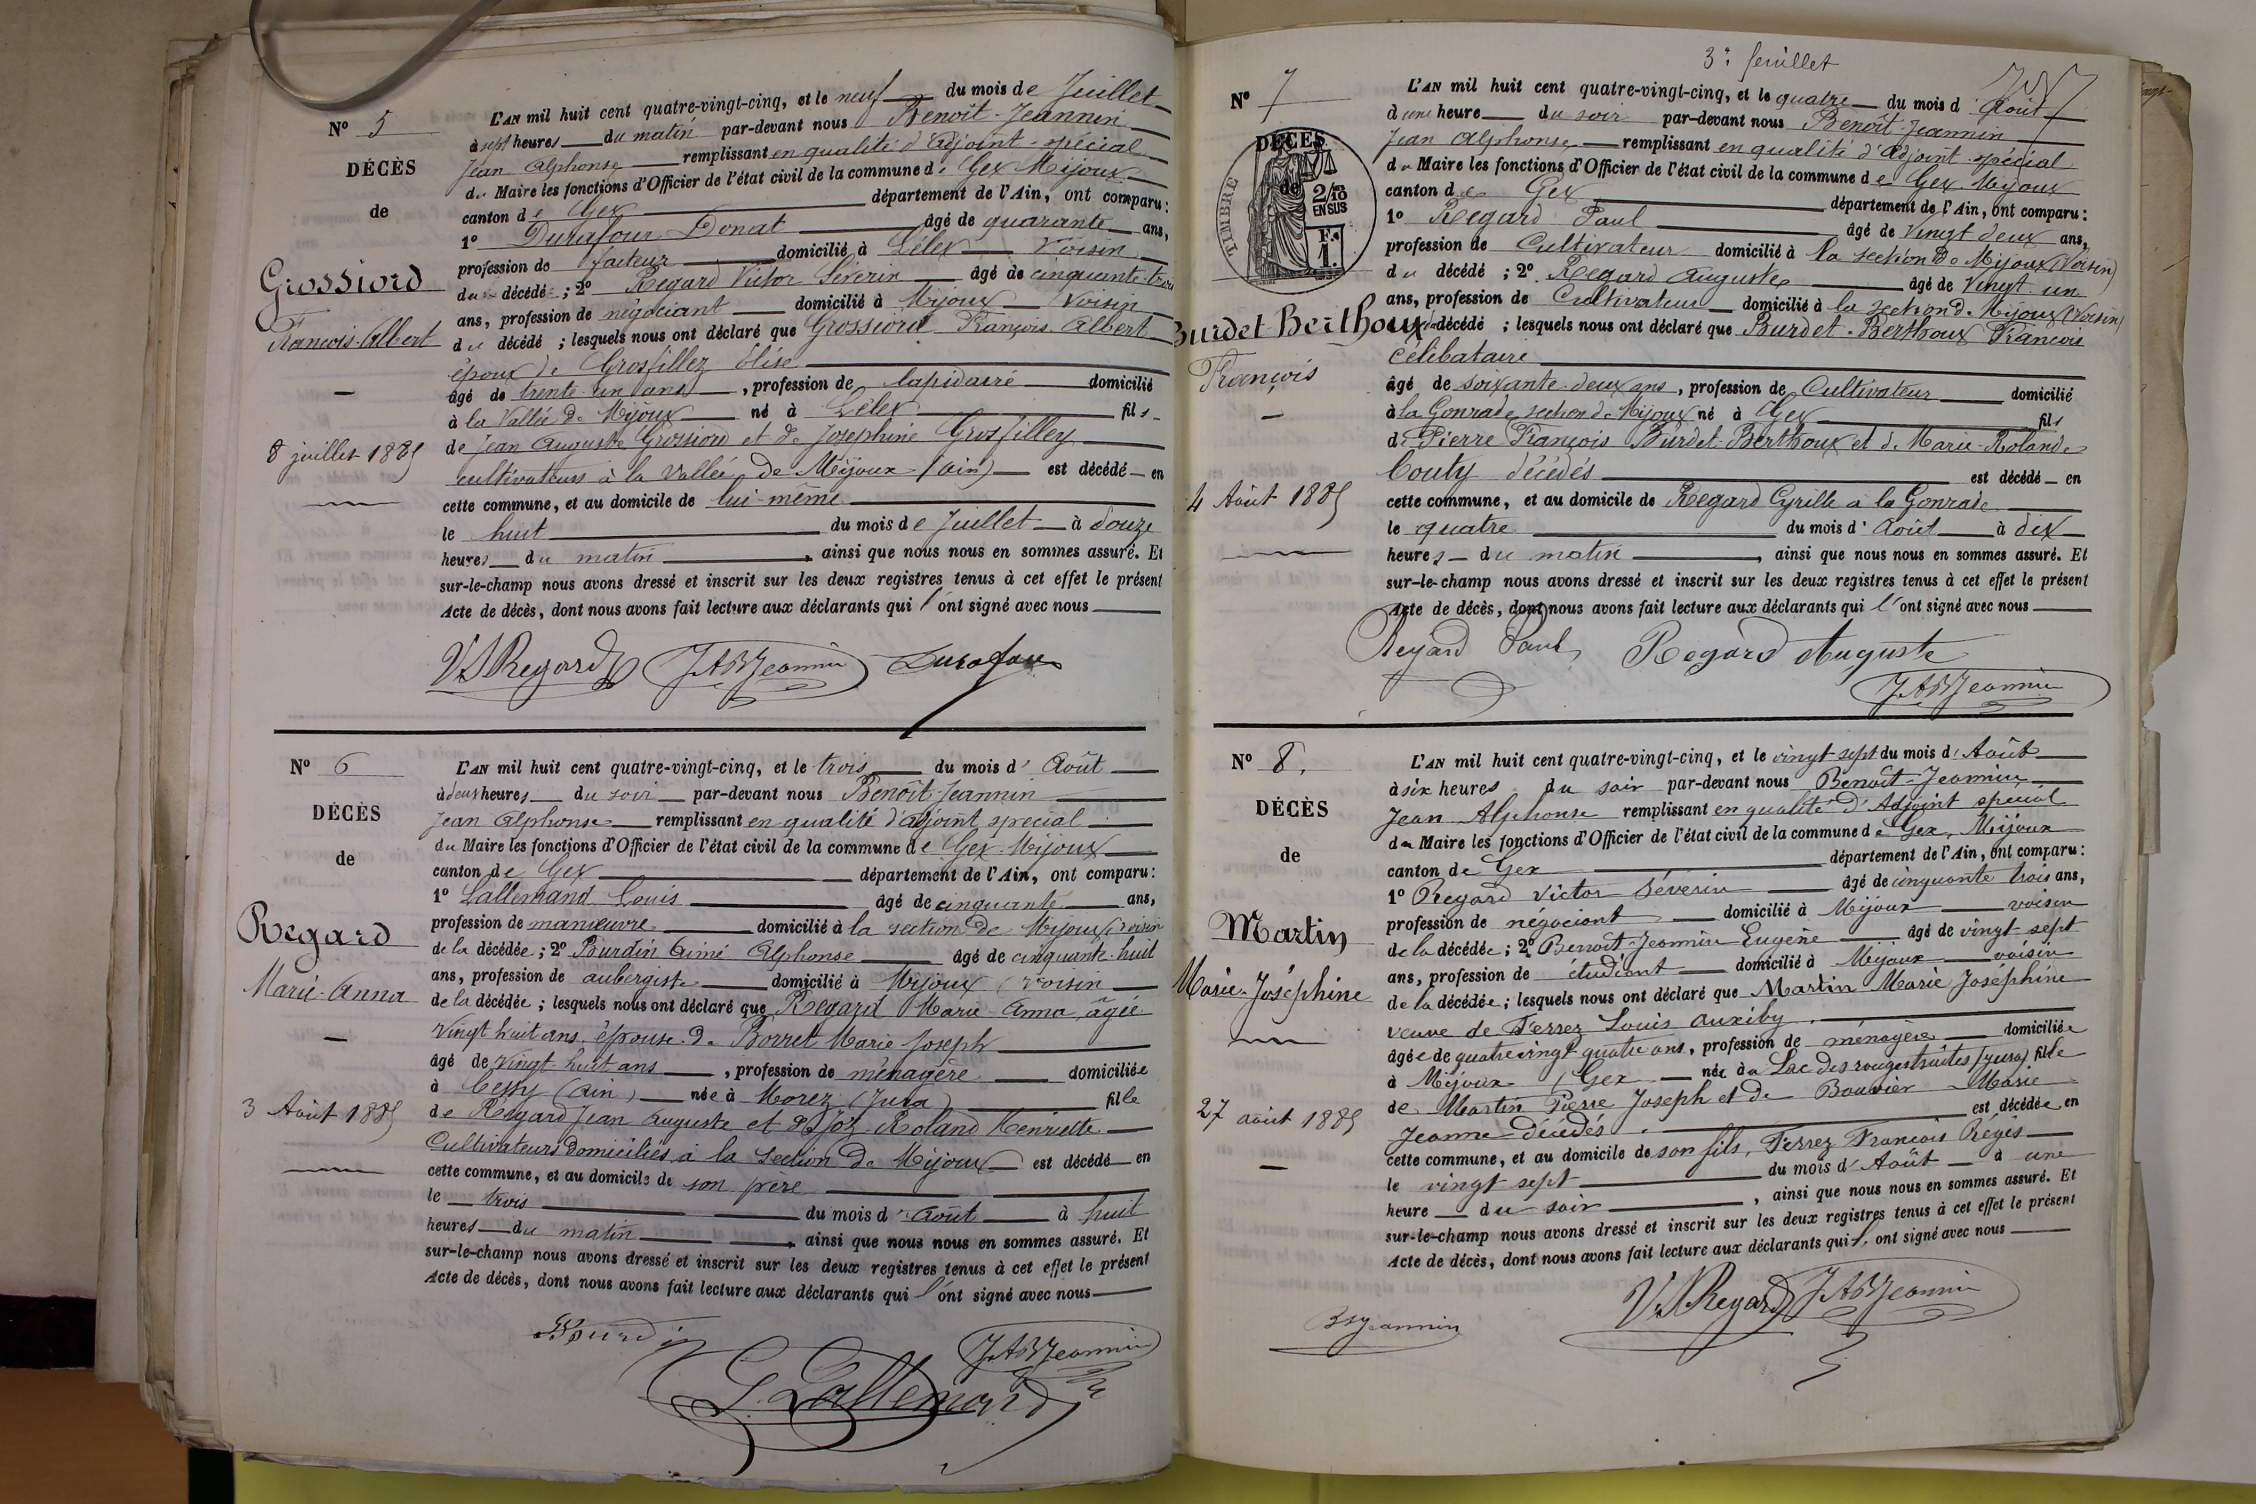 N° 5
DÉCÈS
de
Grossiord
François-Albert
8 juillet 1885
L'AN mil huit cent quatre-vingt-cinq, et le neuf du mois de Juillet
à sept heures du matin par-devant nous Benoît-Jeannin
Jean Alphonse remplissant en qualité d'adjoint-spécial
du Maire les fonctions d'Officier de l'état civil de la commune de Gex Mijoux
canton de Gex département de l'Ain, ont comparu :
1° Durafour Donat âgé de quarante ans,
profession de facteur domicilié à Lélex voisin
du décédé ; 2° Regard Victor Séverin âgé de cinquante-trois
ans, profession de négociant domicilié à Mijoux voisin
du décédé ; lesquels nous ont déclaré que Grossiord François Albert
époux de Grosfillez Elise
âgé de trente-un ans, profession de lapidaire domicilié
à la Vallée de Mijoux né à Lélex fils
de Jean Auguste Grossiord et de Josephine Grosfilley
cultivateurs à la Vallée de Mijoux (ain) est décédé en
cette commune, et au domicile de lui-même
le huit du mois de Juillet à douze
heures du matin, ainsi que nous nous en sommes assuré. Et
sur-le-champ nous avons dressé et inscrit sur les deux registres tenus à cet effet le présent
Acte de décès, dont nous avons fait lecture aux déclarants qui l'ont signé avec nous
VSRegard JABJeannin Durafour
N° 6
DÉCÈS
de
Regard
Marie-Anna
3 Août 1885
L'AN mil huit cent quatre-vingt-cinq, et le trois du mois d'Août
à deux heures du soir par-devant nous Benoît-Jeannin
Jean Alphonse remplissant en qualité d'adjoint spécial
du Maire les fonctions d'Officier de l'état civil de la commune de Gex-Mijoux
canton de Gex département de l'Ain, ont comparu :
1° Lallemand Louis âgé de cinquante ans,
profession de manœuvre domicilié à la section de Mijoux (voisin
de la décédée ; 2° Bourdin Aimé Alphonse âgé de cinquante-huit
ans, profession de aubergiste domicilié à Mijoux (voisin
de la décédée ; lesquels nous ont déclaré que Regard Marie-Anna âgée
vingt huit ans, épouse de Borrel Marie Joseph
âgé de vingt-huit ans, profession de ménagère domiciliée
à Cessy (ain) née à Morez (Jura) fille
de Regard Jean Auguste et de Roland Henriette
Cultivateurs domiciliés à la section de Mijoux est décédé en
cette commune, et au domicile de son père
le trois du mois d'août à huit
heures du matin, ainsi que nous nous en sommes assuré. Et
sur-le-champ nous avons dressé et inscrit sur les deux registres tenus à cet effet le présent
Acte de décès, dont nous avons fait lecture aux déclarants qui l'ont signé avec nous
Bourdin JABJeannin
L. Lallemand
3e feuillet
N° 7
DÉCÈS
de
TIMBRE
2/10
EN SUS
F.
1.
Burdet-Berthoux
François
4 Août 1885
L'AN mil huit cent quatre-vingt-cinq, et le quatre du mois d'Août
à une heure du soir par-devant nous Benoît-Jeannin
Jean Alphonse remplissant en qualité d'adjoint-spécial
du Maire les fonctions d'Officier de l'état civil de la commune de Gex Mijoux
canton de Gex département de l'Ain, ont comparu :
1° Regard Paul âgé de Vingt deux ans,
profession de Cultivateur domicilié à la section de Mijoux (Voisin)
du décédé ; 2° Regard Auguste âgé de Vingt un
ans, profession de Cultivateur domicilié à la section de Mijoux (Voisin)
du décédé ; lesquels nous ont déclaré que Burdet-Berthoux François
Célibataire
âgé de soixante-deux ans, profession de Cultivateur domicilié
à la Gonrade section de Mijoux né à Gex fils
de Pierre François Burdet-Berthoux et de Marie-Rolande
Couty décédés est décédé en
cette commune, et au domicile de Regard Cyrille à la Gonrade
le quatre du mois d'Août à dix
heures du matin, ainsi que nous nous en sommes assuré. Et
sur-le-champ nous avons dressé et inscrit sur les deux registres tenus à cet effet le présent
Acte de décès, dont nous avons fait lecture aux déclarants qui l'ont signé avec nous
Regard Paul Regard Auguste
JABJeannin
N° 8.
DÉCÈS
de
Martin
Marie-Joséphine
27 août 1885
L'AN mil huit cent quatre-vingt-cinq, et le vingt-sept du mois d'Août
à six heures du soir par-devant nous Benoît-Jeannin
Jean Alphonse remplissant en qualité d'Adjoint spécial
du Maire les fonctions d'Officier de l'état civil de la commune de Gex, Mijoux
canton de Gex département de l'Ain, ont comparu :
1° Regard Victor Séverin âgé de cinquante trois ans,
profession de négociant domicilié à Mijoux voisin
de la décédée ; 2° Benoît-Jeannin Eugène âgé de vingt-sept
ans, profession de étudiant domicilié à Mijoux voisin
de la décédée ; lesquels nous ont déclaré que Martin Marie Joséphine
veuve de Ferrez Louis Auxiby
âgée de quatre vingt quatre ans, profession de ménagère domiciliée
à Mijoux (Gex née à Lac des rouges truites (jura) fille
de Martin Pierre Joseph et de Bouvier Marie
Jeanne décédés est décédée en
cette commune, et au domicile de son fils, Ferrez François Régis
le vingt sept du mois d'Août à une
heure du soir, ainsi que nous nous en sommes assuré. Et
sur-le-champ nous avons dressé et inscrit sur les deux registres tenus à cet effet le présent
Acte de décès, dont nous avons fait lecture aux déclarants qui l'ont signé avec nous
VSRegard JABJeannin